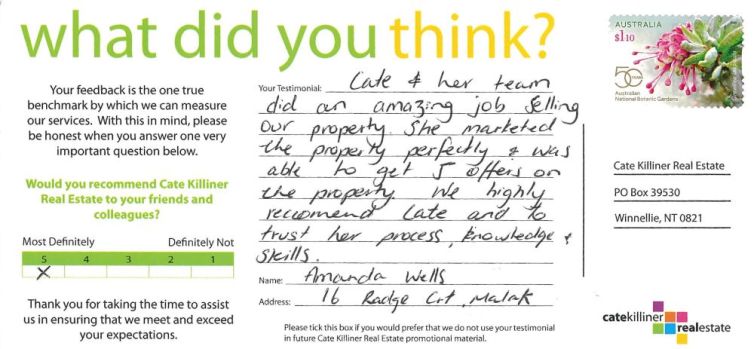 what did you think?
AUSTRALIA
$1.10
50 YEARS
Australian
National Botanic Gardens
Your feedback is the one true
benchmark by which we can measure
our services. With this in mind, please
be honest when you answer one very
important question below.
Would you recommend Cate Killiner
Real Estate to your friends and
colleagues?
Most Definitely Definitely Not
5 4 3 2 1
X
Thank you for taking the time to assist
us in ensuring that we meet and exceed
your expectations.
Your Testimonial: Cate & her team
did an amazing job selling
our property. She marketed
the property perfectly & was
able to get 5 offers on
the property. We highly
recomend Cate and to
trust her process, knowledge &
skills.
Name: Amanda Wells
Address: 16 Radge Crt, Malak
Please tick this box if you would prefer that we do not use your testimonial
in future Cate Killiner Real Estate promotional material.
Cate Killiner Real Estate
PO Box 39530
Winnellie, NT 0821
catekilliner
realestate